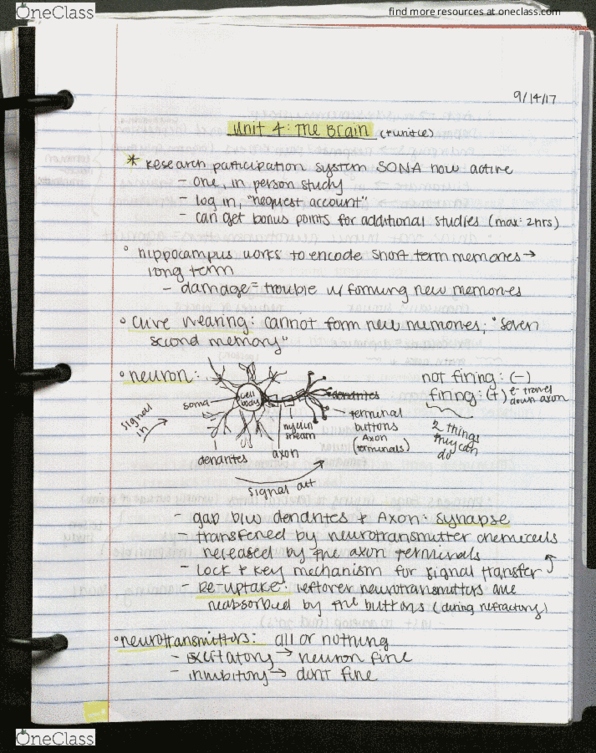 OneClass
find more resources at oneclass.com
9/14/17
Unit 4: The Brain
* Research participation system SONA now active
- one, in person study
- log in, "request account"
- can get bonus points for additional studies (max: 2hrs)
° hippocampus works to encode short term memories →
long term
- damage = trouble w/ forming new memories
° Clive Wearing: cannot form new memories; "seven
second memory"
° neuron:
signal in
soma
cell body
dendrites
myelin sheath
axon
dendrites
terminal
buttons
(Axon
terminals)
signal out
not firing: (-)
firing: (+) e- travel
down axon
2 things
they can
do
- gap b/w dendrites + Axon: synapse
- transferred by neurotransmitter chemicals
released by the axon terminals
- lock + key mechanism for signal transfer
- Re-uptake: leftover neurotransmitters are
reabsorbed by the buttons (during refractory)
° neurotransmitters: all or nothing
- excitatory → neuron fire
- inhibitory → dont fire
OneClass